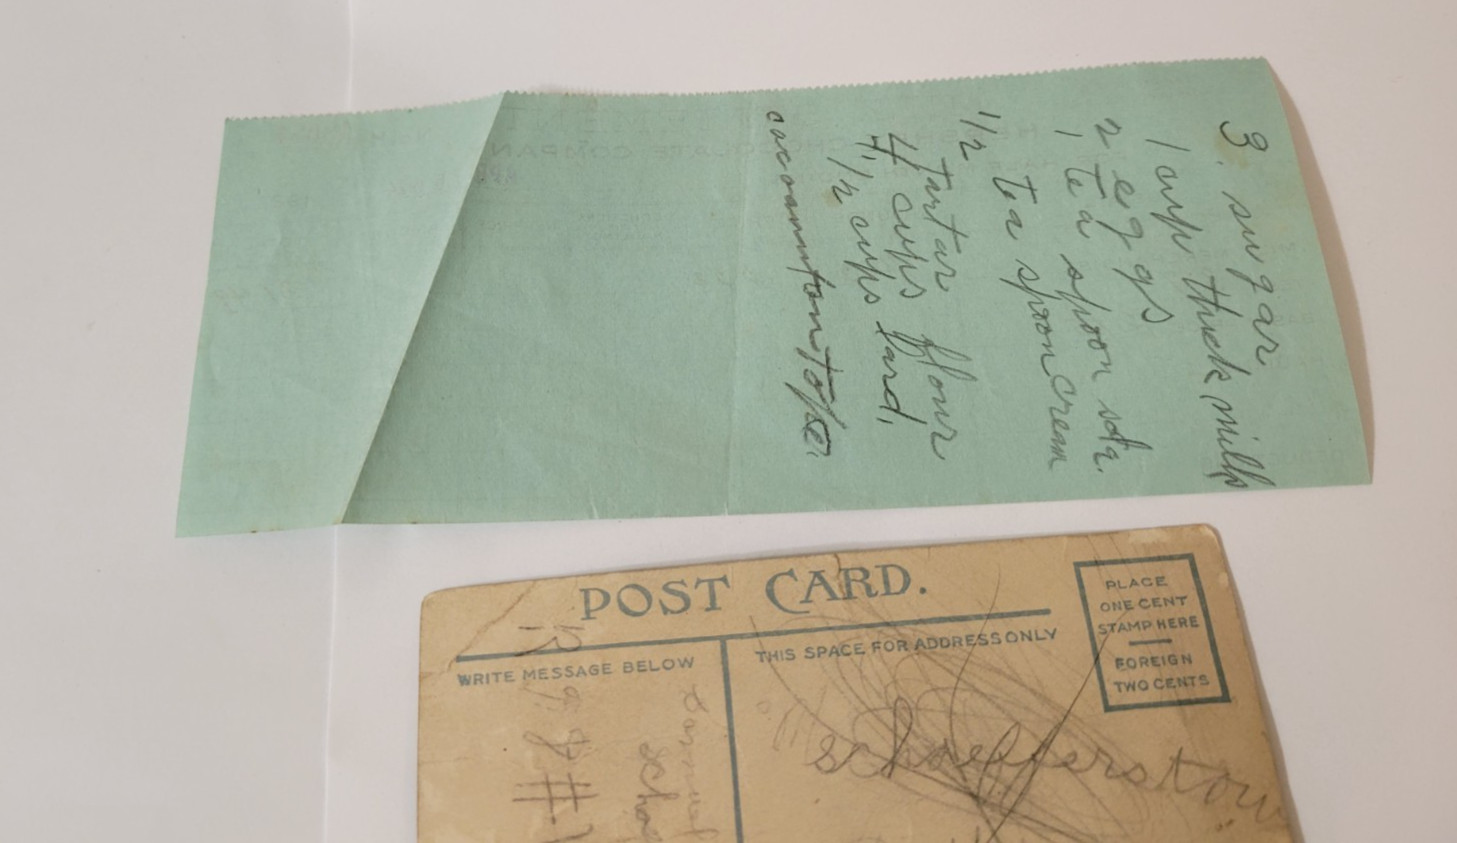 3. sugar
1 cup thick milk
2 eggs
1 tea spoon soda.
1/2 tea spoon cream
tartar
4 cups flour
1 1/2 cups lard,
HERSHEY CHOCOLATE COMPAN
POST CARD.
PLACE
ONE CENT
STAMP HERE
FOREIGN
TWO CENTS
WRITE MESSAGE BELOW
THIS SPACE FOR ADDRESS ONLY
R
#
Schaefferstown